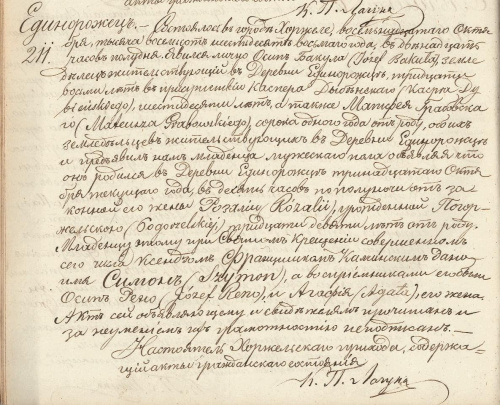 К. П. Лагуна
Единорожец.— Состоялось въ городѣ Хоржеле, восемнадцатаго Октя-
211. бря, тысяча восемьсотъ шестьдесятъ восьмаго года, въ двѣнадцать
часовъ полудня. Явился лично Осипъ Бакула (Józef Bakuła), земле-
дѣлецъ жительствующій въ Деревни Единорожецъ, тридцати
восьми лѣтъ, въ присутствіи Каспера Дыбинскаго (Kaspra Dy-
bińskiego), шестидесяти лѣтъ, а также Матфея Грабовска-
го (Mateusza Grabowskiego), сорока одного года отъ роду, обоихъ
земледѣльцевъ жительствующихъ въ Деревни Единорожецъ
и предъявилъ намъ младенца мужескаго пола объявляя что
онъ родился въ Деревни Единорожецъ тринадцатаго Октя-
бря текущаго года, въ десять часовъ по полуночи отъ за-
конной его жены Розаліи (Rozalii), урожденной Погор-
жельской (Pogorzelskiej), тридцати девяти лѣтъ отъ роду.
Младенцу этому при Святомъ Крещеніи совершенномъ
сего числа Ксендзомъ Францишкомъ Каминскимъ дано
имя Симонъ (Szymon), а воспріемниками его были
Осипъ Рено (Józef Reno), и Агафія (Agata), его жена.
Актъ сей объявляющему и свидѣтелямъ прочитанъ и
за неумѣніемъ ихъ грамотности неподписанъ.—
Настоятель Хоржельскаго прихода, содержа-
щій акты гражданскаго состоянія
К. П. Лагуна